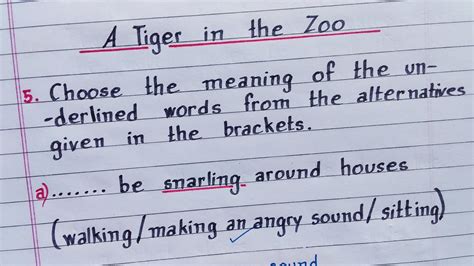 A Tiger in the Zoo
5. Choose the meaning of the un-
-derlined words from the alternatives
given in the brackets.
a)....... be snarling around houses
(walking/making an angry sound/sitting)